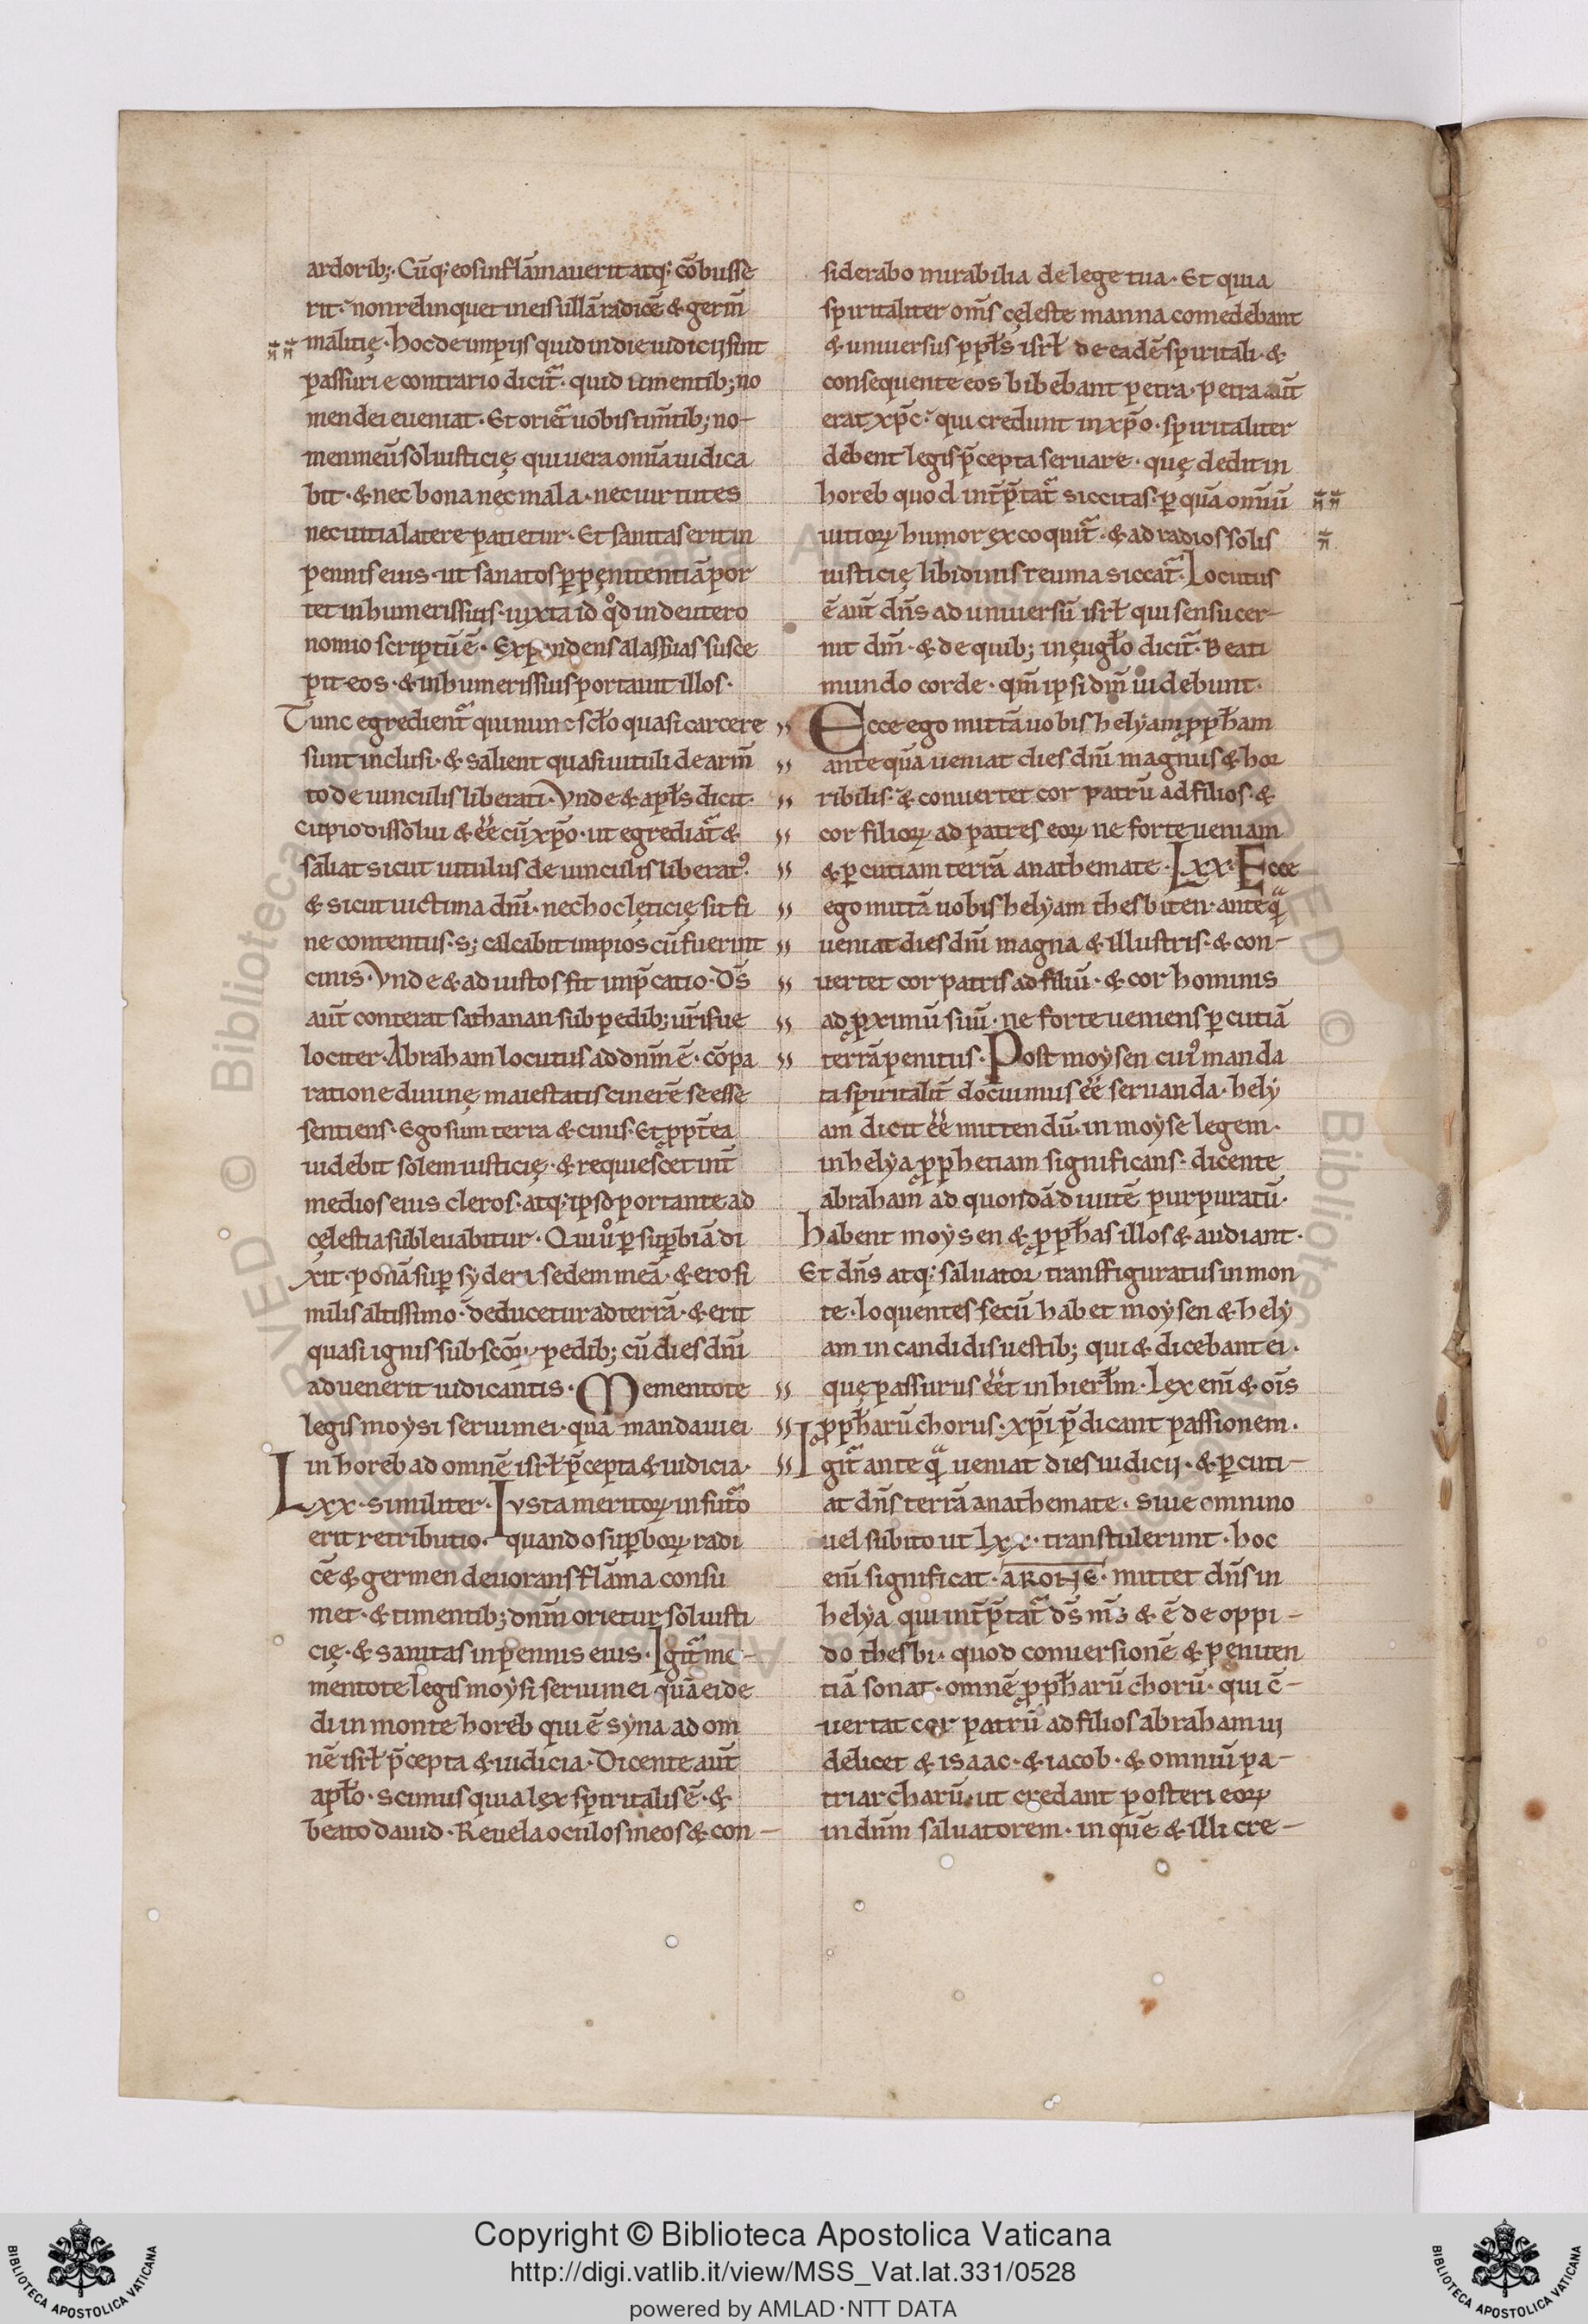 ardorib;· Cūq; eos inflāmauerit atq; cōbusse
rit· non relinquet in eis ullā radicē & germ̄
malitię· hoc de impijs quid in die iudicij sint
passuri e contrario dicitᷓ· quid timentib; no
men dei eueniat· Et orietᷓ uobis tim̄tib; no-
men meū sol iusticię qui uera omīa iudica
bit· & nec bona nec mala· nec uirtutes
nec uitia latere patietur· Et sanitas erit in
pennis eius· ut sanatos p̱ pęnitentiā por
tet in humeris suis· iuxta id qd̊ in deutero
nomio scriptū ē· Expandens alas suas susce
pit eos· & in humeris suis portauit illos·
Tunc egredientᷓ qui nunc scł̄o quasi carcere
sunt inclusi· & salient quasi uituli de arm̄
to de uinculis liberati· Vnde & apłs dicit·
cupio dissolui & ēē cū xp̄o· ut egrediatᷓ &
saliat sicut uitulus de uinculis liberat᾿·
& sicut uictima dn̄i· nec hoc lęticię sit fi
ne contentus· s; calcabit impios cū fuerint
cinis· Vnde & ad iustos fit imp̄catio· Ds̄
aūt conterat sathanan sub pedib; ur̄is ue
lociter· Abraham locutus ad dnm̄ ē· cōpa
ratione diuinę maiestatis cinerē se esse
sentiens· Ego sum terra & cinis· Et ꝓpt̄ea
uidebit solem iusticię· & requiescet int̄
medios eius cleros· atq; ipso portante ad
cęlestia subleuabitur· Qui uº p̱ sup̱biā di
xit· ponā sup̱ sydera sedem meā· & ero si
milis altissimo· deducetur ad terrā· & erit
quasi ignis sub scōꝝ pedib; cū dies dn̄i
aduenerit iudicantis· Mementote
legis moysi serui mei· quā mandaui ei
in horeb ad omnē isrł p̄cepta & iudicia·
Lxx· similiter· Iusta meritoꝝ in futᷓo
erit retributio· quando sup̱boꝝ radi
cē & germen deuorans flāma consu
met· & timentib; dnm̄ orietur sol iusti
cię· & sanitas in pennis eius· Igitᷓ me-
mentote legis moysi serui mei quā ei de
di in monte horeb qui ē syna ad om
nē isrł p̄cepta & iudicia· Dicente aūt
apłō· scimus quia lex spiritalis ē· &
beato dauid· Reuela oculos meos & con-
siderabo mirabilia de lege tua· Et quia
spiritaliter om̄s cęleste manna comedebant
& uniuersus ppłs isrł de eadē spiritali· &
consequente eos bibebant petra· petra aūt
erat xp̄c· qui credunt in xp̄o· spiritaliter
debent legis p̄cepta seruare· quę dedit in
horeb quod int̄p̄tatᷓ siccitas· p̱ quā omniū
uitioꝝ humor excoquitᷓ· & ad radios solis
iusticię libidinis reuma siccatᷓ· Locutus
ē aūt dn̄s ad uniuersū isrł qui sensu cer-
nit dm̄· & de quib; in ęugłō dicitᷓ· Beati
mundo corde· qm̄ ipsi dm̄ uidebunt·
Ecce ego mittā uobis helyam ꝓpħam
ante quā ueniat dies dn̄i magnus & hor
ribilis· & conuertet cor patrū ad filios· &
cor filioꝝ ad patres eoꝝ ne forte ueniam
& p̱cutiam terrā anathemate· Lxx· Ecce
ego mittā uobis helyam thesbiten· anteqᷓ
ueniat dies dn̄i magna & illustris· & con-
uertet cor patris ad filiū· & cor hominis
ad ꝓximū suū· ne forte ueniens p̱cutiā
terrā penitus· Post moysen cui᾿ manda
ta spiritalit̄ docuimus ēē seruanda· hely
am dicit ēē mittendū· in moyse legem·
in helya ꝓphetiam significans· dicente
abraham ad quondā diuitē purpuratū·
habent moysen & ꝓpħas illos & audiant·
Et dn̄s atq; saluator transfiguratus in mon
te· loquentes secū habet moysen & hely
am in candidis uestib; qui & dicebant ei·
quę passurus ēēt in hierłm· Lex enī & oīs
ꝓpħarū chorus· xp̄i p̄dicant passionem·
Igitᷓ ante qᷓ ueniat dies iudicij· & p̱cuti-
at dn̄s terrā anathemate· siue omnino
uel subito ut Lxx· transtulerunt· hoc
enī significat· ΑΡΟΗΝ· mittet dn̄s in
helya qui int̄p̄tatᷓ ds̄ ms̄ & ē de oppi-
do thesbi· quod conuersionē & peniten
tiā sonat· omnē ꝓpħarū chorū· qui c̄-
uertat cor patrū ad filios abraham ui
delicet & isaac· & iacob· & omniū pa-
triarcharū· ut credant posteri eoꝝ
in dnm̄ saluatorem· in quē & illi cre-
Copyright © Biblioteca Apostolica Vaticana
http://digi.vatlib.it/view/MSS_Vat.lat.331/0528
powered by AMLAD·NTT DATA
BIBLIOTECA APOSTOLICA VATICANA
BIBLIOTECA APOSTOLICA VATICANA